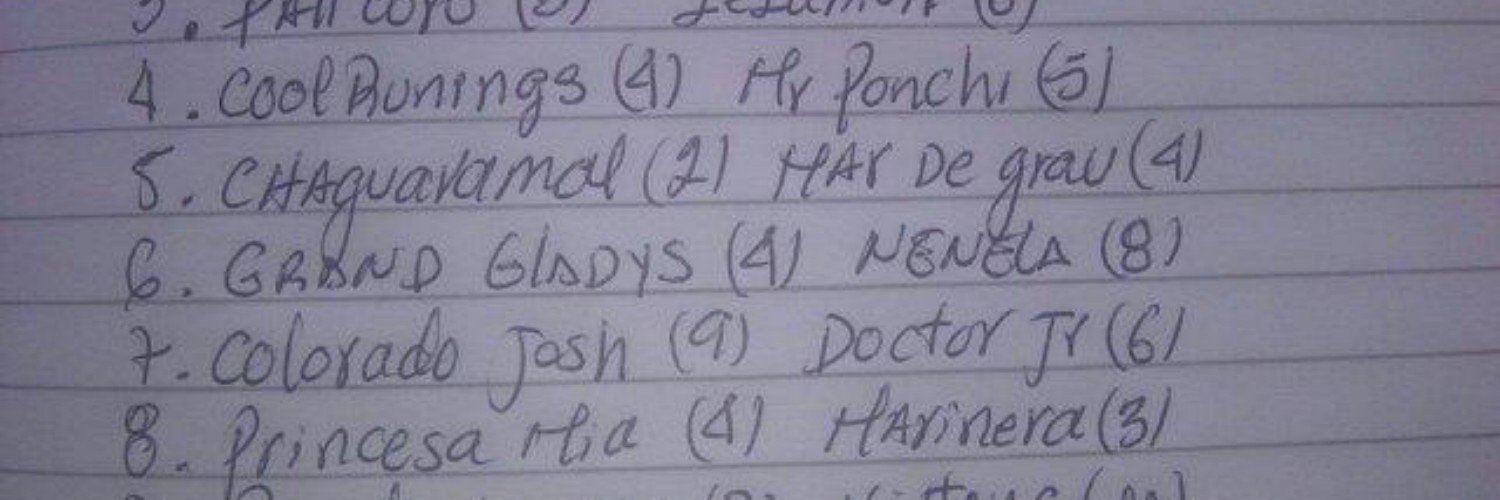 4. Cool Runings (4) Mr Ponchi (5)
5. CHAguaramal (2) MAr De grau (4)
6. GRAND GlADYS (4) NENELA (8)
7. Colorado Josh (9) Doctor Jr (6)
8. Princesa Mia (4) MArinera (3)